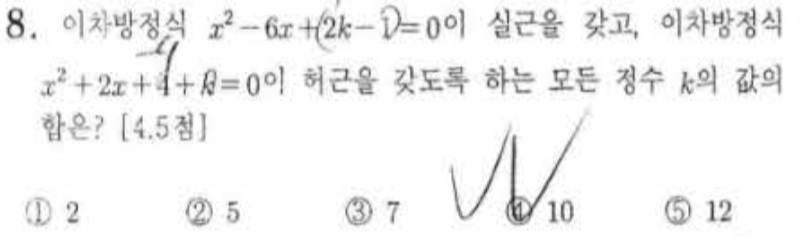 8. 이차방정식 x² - 6x + (2k - 1) = 0이 실근을 갖고, 이차방정식
x² + 2x + 4 + k = 0이 허근을 갖도록 하는 모든 정수 k의 값의
합은? [4.5점]
① 2 ② 5 ③ 7 ④ 10 ⑤ 12